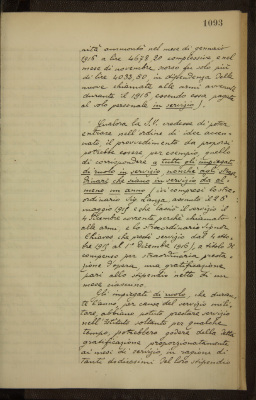 1093
nità ammontò nel mese di gennaio
1916 a lire 4678,20 complessive, e nel
mese di novembre scorso fu solo più
di lire 4033,80, in dipendenza delle
nuove chiamate alle armi avvenute
durante il 1916 essendo essa pagata
al solo personale in servizio).
Qualora la S.V. credesse di poter
entrare nell'ordine di idee accen-
nato, il provvedimento da proporsi
potrebbe essere, per esempio, quello
di corrispondere a tutti gli impiegati
di ruolo in servizio, nonchè agli straor-
dinari che siano in servizio da al-
meno un anno (ivi compresi lo stra-
ordinario Sig. Lanza, assunto il
maggio 1915 e che lasciò il servizio il
4 dicembre corrente perchè chiamato
alle armi, e lo straordinario Signor
che prestò servizio dal
1915 al 1° dicembre 1916), a titolo di
compenso per straordinaria presta-
zione d'opera, una gratificazione
pari allo stipendio netto di un
mese ciascuno.
Gli impiegati di ruolo, che duran-
te l'anno, per causa del servizio mili-
tare, abbiano potuto prestare servizio
nell'Istituto soltanto per qualche
tempo, potrebbero godere della detta
gratificazione proporzionatamente
ai mesi di servizio, in ragione di
tanti dodicesimi del loro stipendio